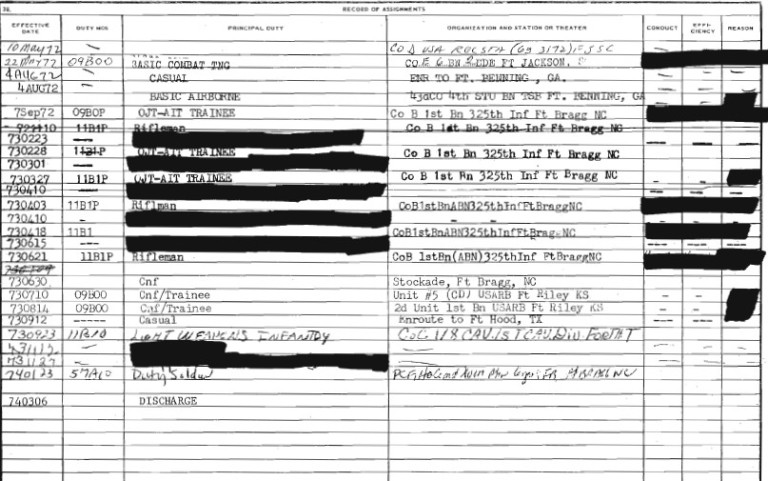 38. RECORD OF ASSIGNMENTS
EFFECTIVE DATE DUTY MOS PRINCIPAL DUTY ORGANIZATION AND STATION OR THEATER CONDUCT EFFI-CIENCY REASON
10 MAY 72 — CO D USA
22 MAY 72 09B00 BASIC COMBAT TNG CO E 6 BN FT JACKSON,
4 AUG 72 CASUAL ENR TO FT. BENNING, GA.
4AUG72 BASIC AIRBORNE 43dCO 4th STU BN TSB FT. BENNING, GA
7Sep72 09B0P OJT-AIT TRAINEE Co B 1st Bn 325th Inf Ft Bragg NC
11B1P Rifleman Co B 1st Bn 325th Inf Ft Bragg NC
730223
730228 11B1P OJT-AIT TRAINEE Co B 1st Bn 325th Inf Ft Bragg NC
730301
730327 11B1P OJT-AIT TRAINEE Co B 1st Bn 325th Inf Ft Bragg NC
730410
730403 11B1P Riflman CoB1stBnABN325thInfFtBraggNC
730410 -
730418 11B1 CoB1stBnABN325thInfFtBraggNC
730615 ---
730621 11B1P Rifleman CoB 1stBn(ABN)325thInf FtBraggNC
730630 Cnf Stockade, Ft Bragg, NC
730710 09B00 Cnf/Trainee Unit #5 (CD) USARB Ft Riley KS
730814 09B00 Cnf/Trainee 2d Unit 1st Bn USARB Ft Riley KS
730912 ----- Casual Enroute to Ft Hood, TX
730923 11B10 LIGHT WEAPONS INFANTRY CoC 1/8 CAV. 1ST CAV. DIV
731127 —
740123 57A10 Duty Soldier NC
740306 DISCHARGE